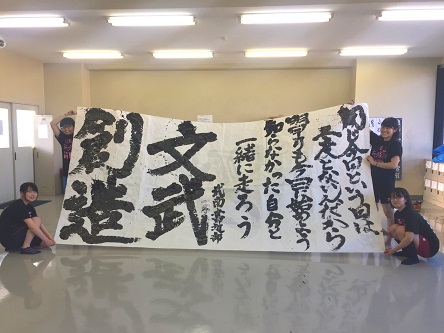 同じ今日という日は
二度とないんだから
明日よりも今日始めよう
知らなかった自分と
一緒に走ろう
文武
書道部
創造